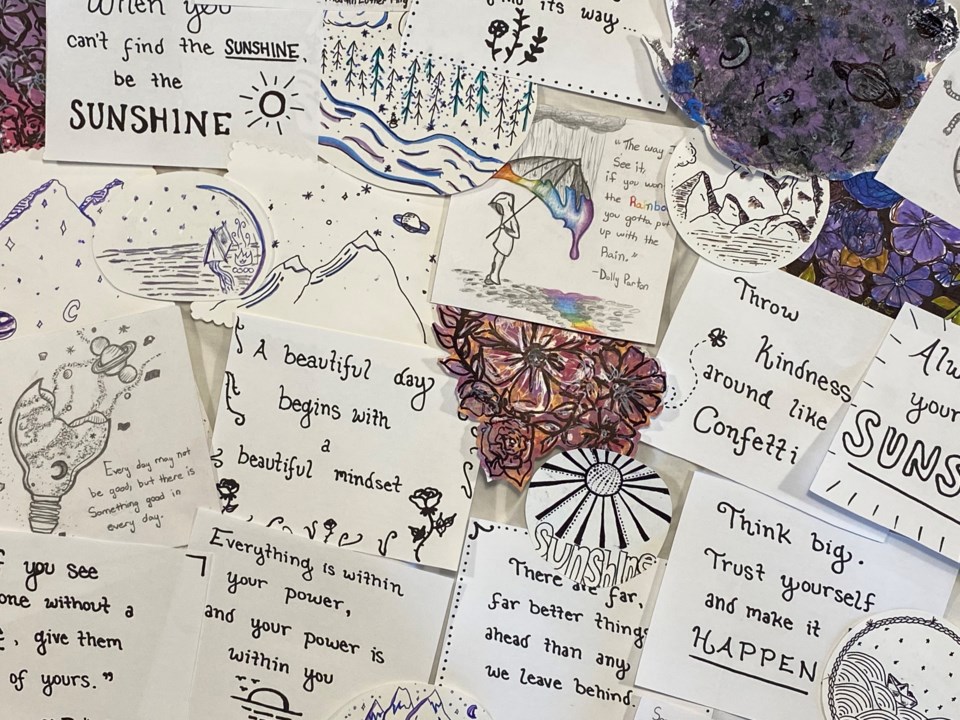 When you
can't find the SUNSHINE,
be the
SUNSHINE
its way
"The way I
See it,
if you
the
you gotta put
up with the
Rain."
-Dolly Parton
Throw
Kindness
around like
Confetti
your
A beautiful day
begins with
a
beautiful mindset
Every day may not
be good, but there is
Something good in
every day.
Sunshine
you see
without a
give them
of yours."
Everything is within
your power,
and your power is
within you
There are far,
far better things
ahead than any
we leave behind.
Think big.
Trust yourself
and make it
HAPPEN